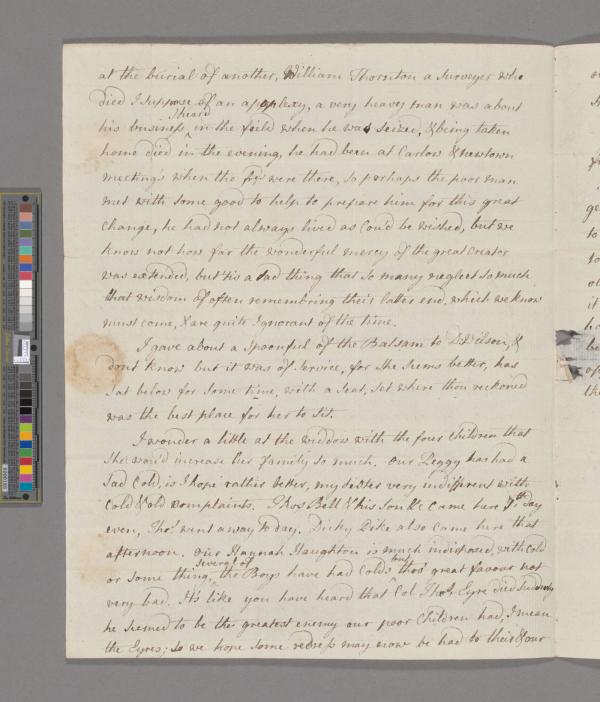 at the burial of another, William Thornton a Surveyer who
died I suppose of an apoplexy, a very heavy man was about
I heard
his business in the feild when he was seized, & being taken
home died in the evening, he had been at Carlow & newtown
meeting's when the frds were there, so perhaps the poor man
met with some good to help to prepare him for this great
change, he had not always lived as could be wished, but we
know not how far the wonderful mercy of the great Creator
was extended, but 'tis a sad thing that so many neglect so much
that wisdom of often remembring their latter end, which we know
must come, & are quite Ignorant of the time.
I gave about a spoonful of the Balsam to D: Wilson, &
dont know but it was of service, for she seems better, has
sat below for some time, with a seat, set where thou reckoned
was the best place for her to sit.
I wonder a little at the widdow with the four Children that
she wou'd increase her family so much. our Peggy has had a
sad Cold, is I hope rather better, my sister very indifferent with
Cold & old complaints. Thos Bell & his son came here 7th day
even, Thos went away to day. Dicky Pike also came here that
afternoon. our Haynah Haughton is much indisposed, with cold
several of but
or some thing, the Boys have had Colds thro' great favour not
very bad. It's like you have heard that Col. Thos Eyre died suddenly
he seemed to be the greatest enemy our poor Children had, I mean
the Eyres; so we hope some redress may now be had to their & our